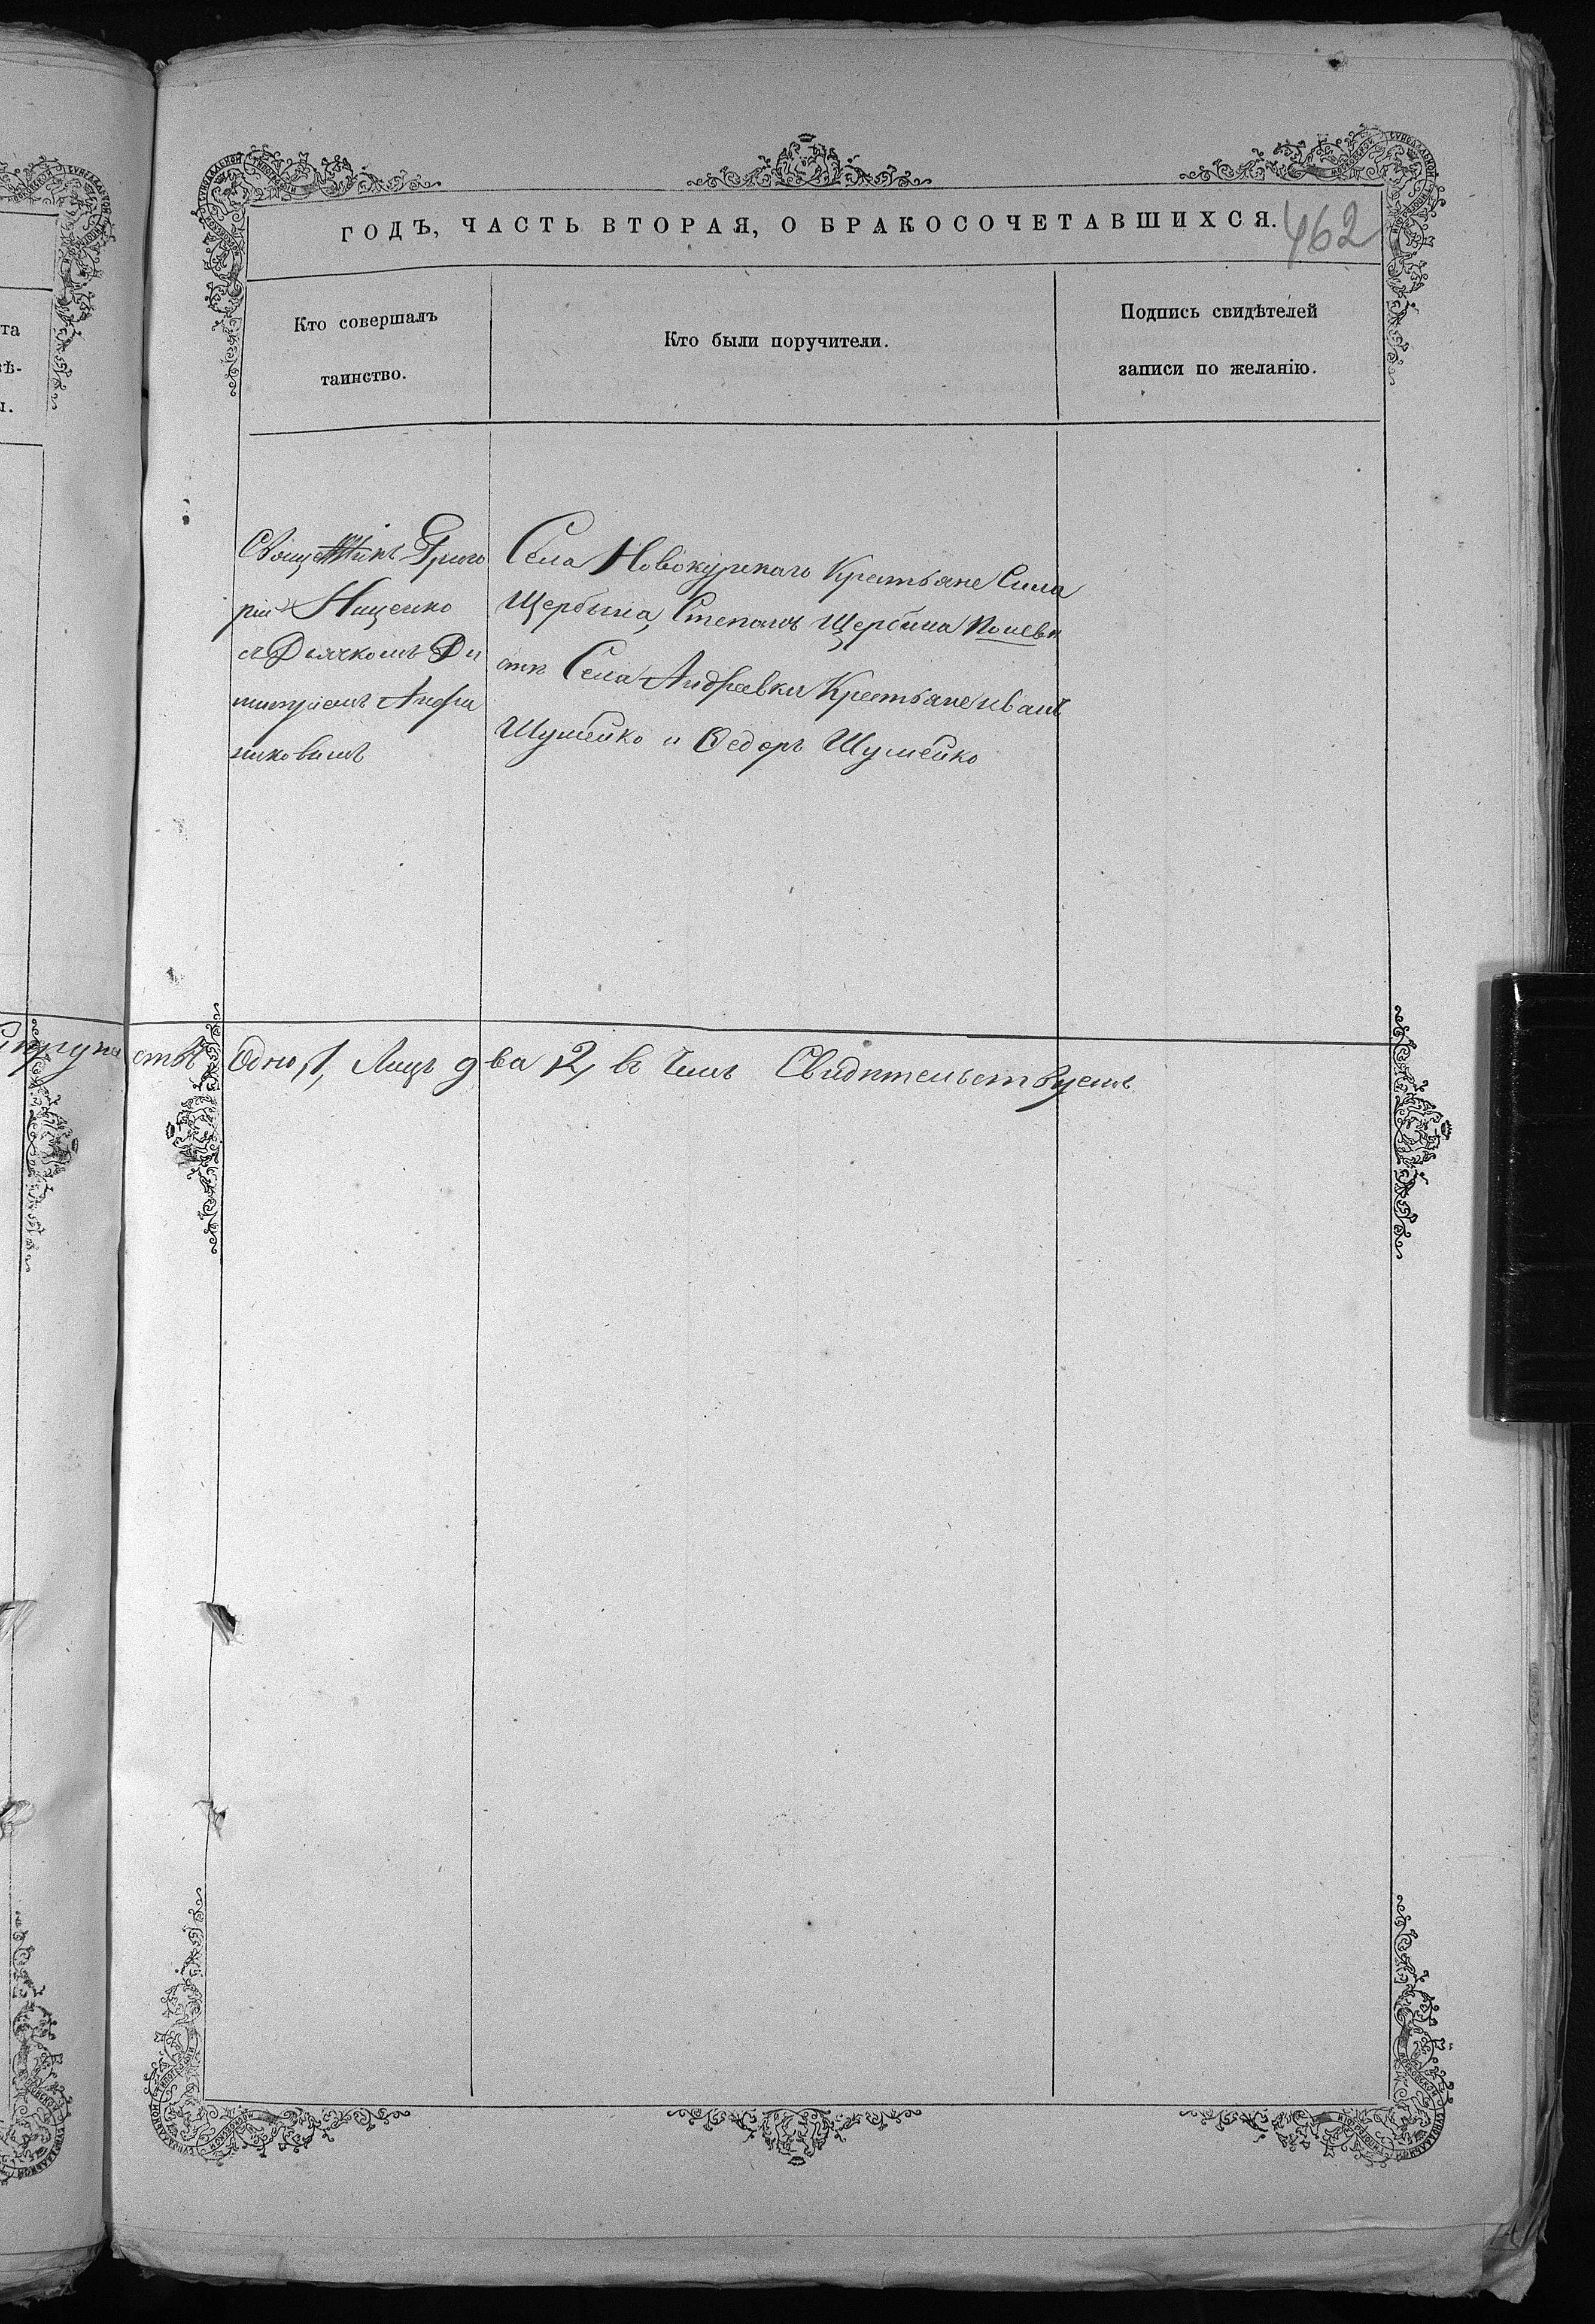 ГОДЪ, ЧАСТЬ ВТОРАЯ, О БРАКОСОЧЕТАВШИХСЯ. 462
Кто совершалъ
таинство.
Кто были поручители.
Подпись свидѣтелей
записи по желанію.
Священникъ Григо
рій Нищенко
съ Дьячкомъ Ди
митріемъ
никовымъ
Села Новокурскаго Крестьяне Сила
Щербина, Степанъ Щербина По невѣ
стѣ Села Андреевки Крестьяне иванъ
Шумейко и Ѳедоръ Шумейко
Супруже
ствъ Одно, 1, Лицъ два 2, въ чемъ Свидѣтельствуемъ
та
ѣ-